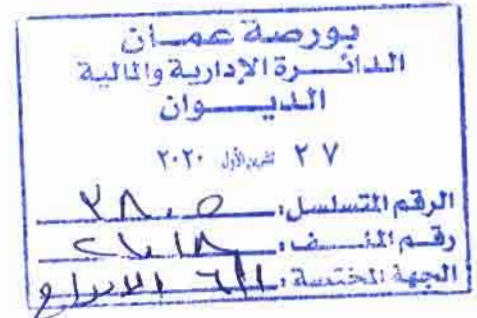 بورصة عمان
الدائرة الإدارية والمالية
الديوان
٢٧ تشرين الأول ٢٠٢٠
الرقم المتسلسل: ٣٨٠٥
رقم الملف:
الجهة المختصة: الادراج